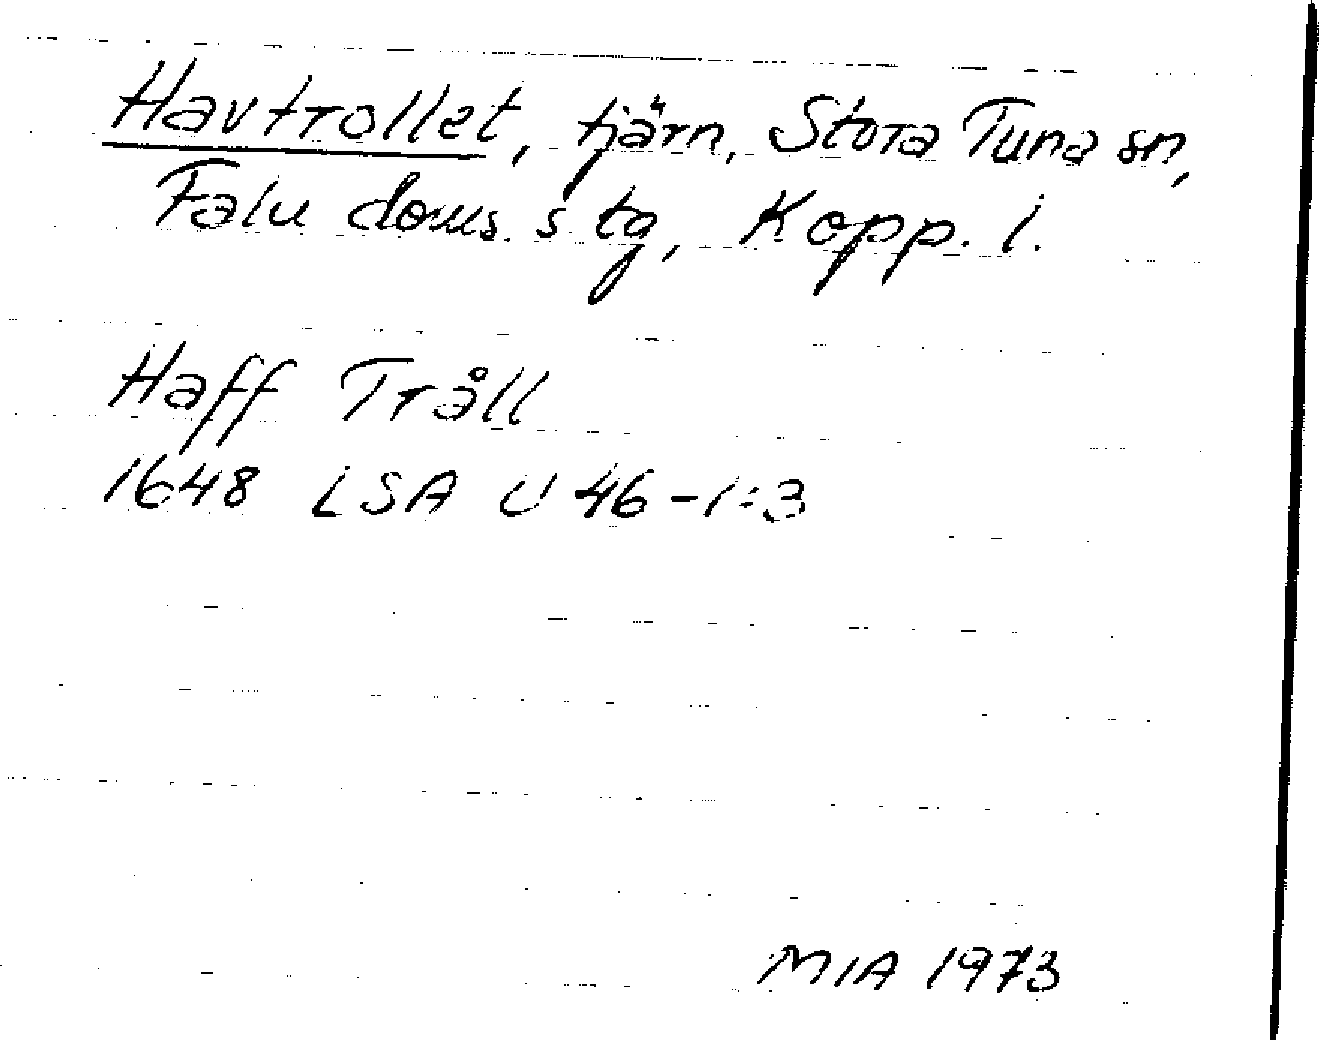 Havtrollet, tjärn, Stora Tuna sn,
Falu doms. s tg, Kopp. l.
Haff Tråll
1648 LSA U 46-1:3
MIA 1973